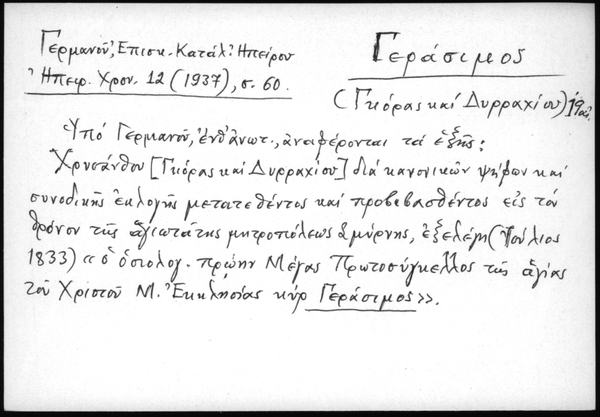 Γερμανοῦ, Ἐπισκ. Κατάλ. Ἠπείρου
Ἠπειρ. Χρον. 12 (1937), σ. 60.
Γεράσιμος
(Γκόρας καί Δυρραχίου) 19 αἰ.
Ὑπό Γερμανοῦ, ἔνθ' ἀνωτ., ἀναφέρονται τά ἑξῆς:
Χρυσάνθου [Γκόρας καί Δυρραχίου] διά κανονικῶν ψήφων καί
συνοδικῆς ἐκλογῆς μετατεθέντος καί προβιβασθέντος εἰς τόν
θρόνον τῆς ἁγιωτάτης μητροπόλεως Σμύρνης, ἐξελέγη (Ἰούλιος
1833) «ὁ ὁσιολογ. πρώην Μέγας Πρωτοσύγκελλος τῆς ἁγίας
τοῦ Χριστοῦ Μ. Ἐκκλησίας κύρ Γεράσιμος».